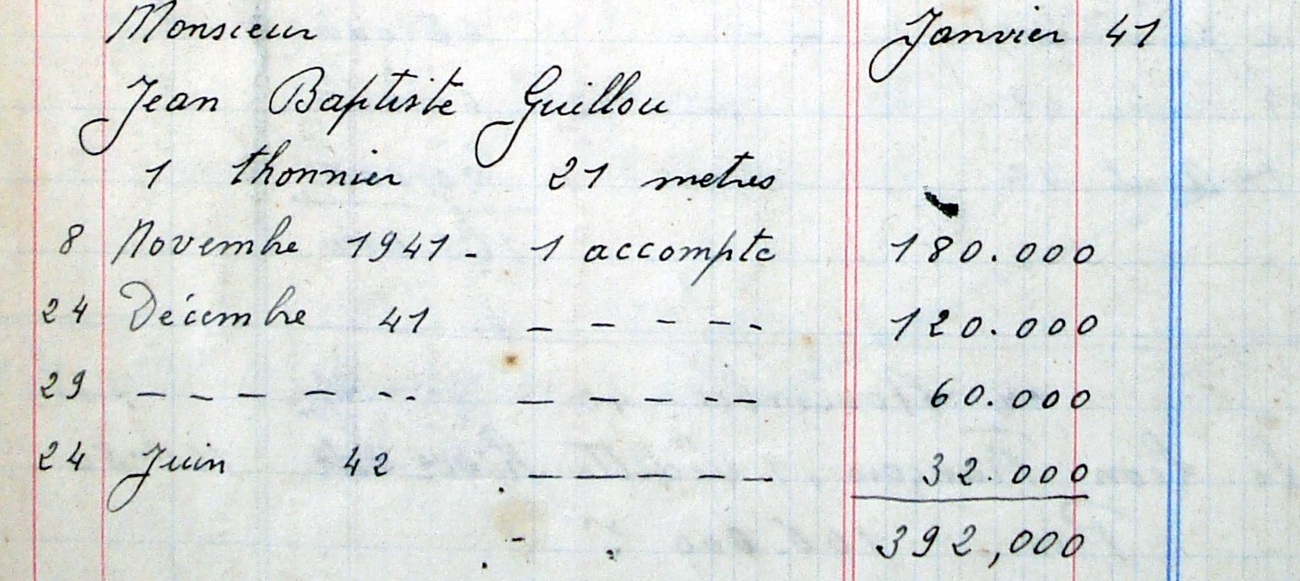 Monsieur Janvier 41
Jean Baptiste Guillou
1 thonnier 21 metres
8 Novembre 1941 - 1 accompte 180.000
24 Décembre 41 - - - - - 120.000
29 - - - - - - - - - - - 60.000
24 Juin 42 - - - - - 32.000
392,000